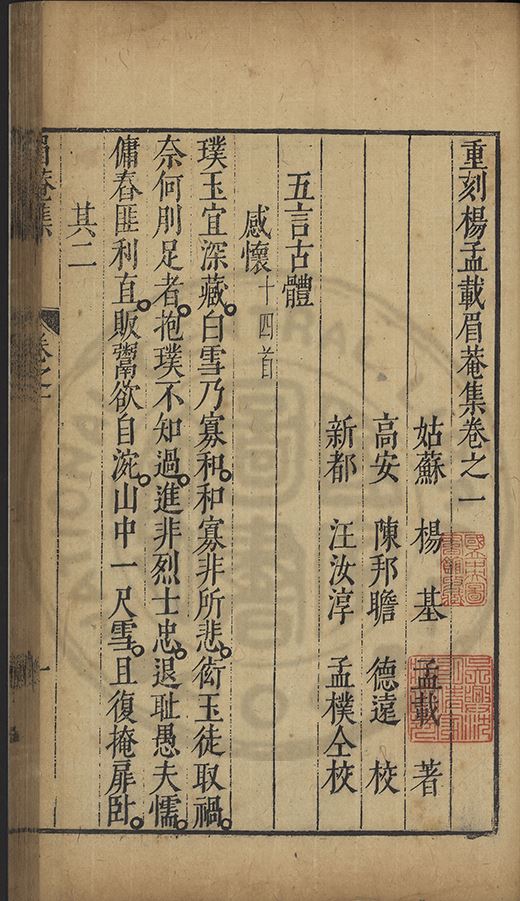 重刻楊孟載眉菴集卷之一
姑蘇 楊基 孟載 著
高安 陳邦瞻 德遠 校
新都 汪汝淳 孟樸仝校
五言古體
感懷十四首
璞玉宜深藏白雪乃寡和和寡非所悲衒玉徒取禍
奈何刖足者抱璞不知過進非烈士忠退耻愚夫懦
傭舂匪利直販鬻欲自浼山中一尺雪且復掩扉卧
其二
眉菴集 卷之一 一